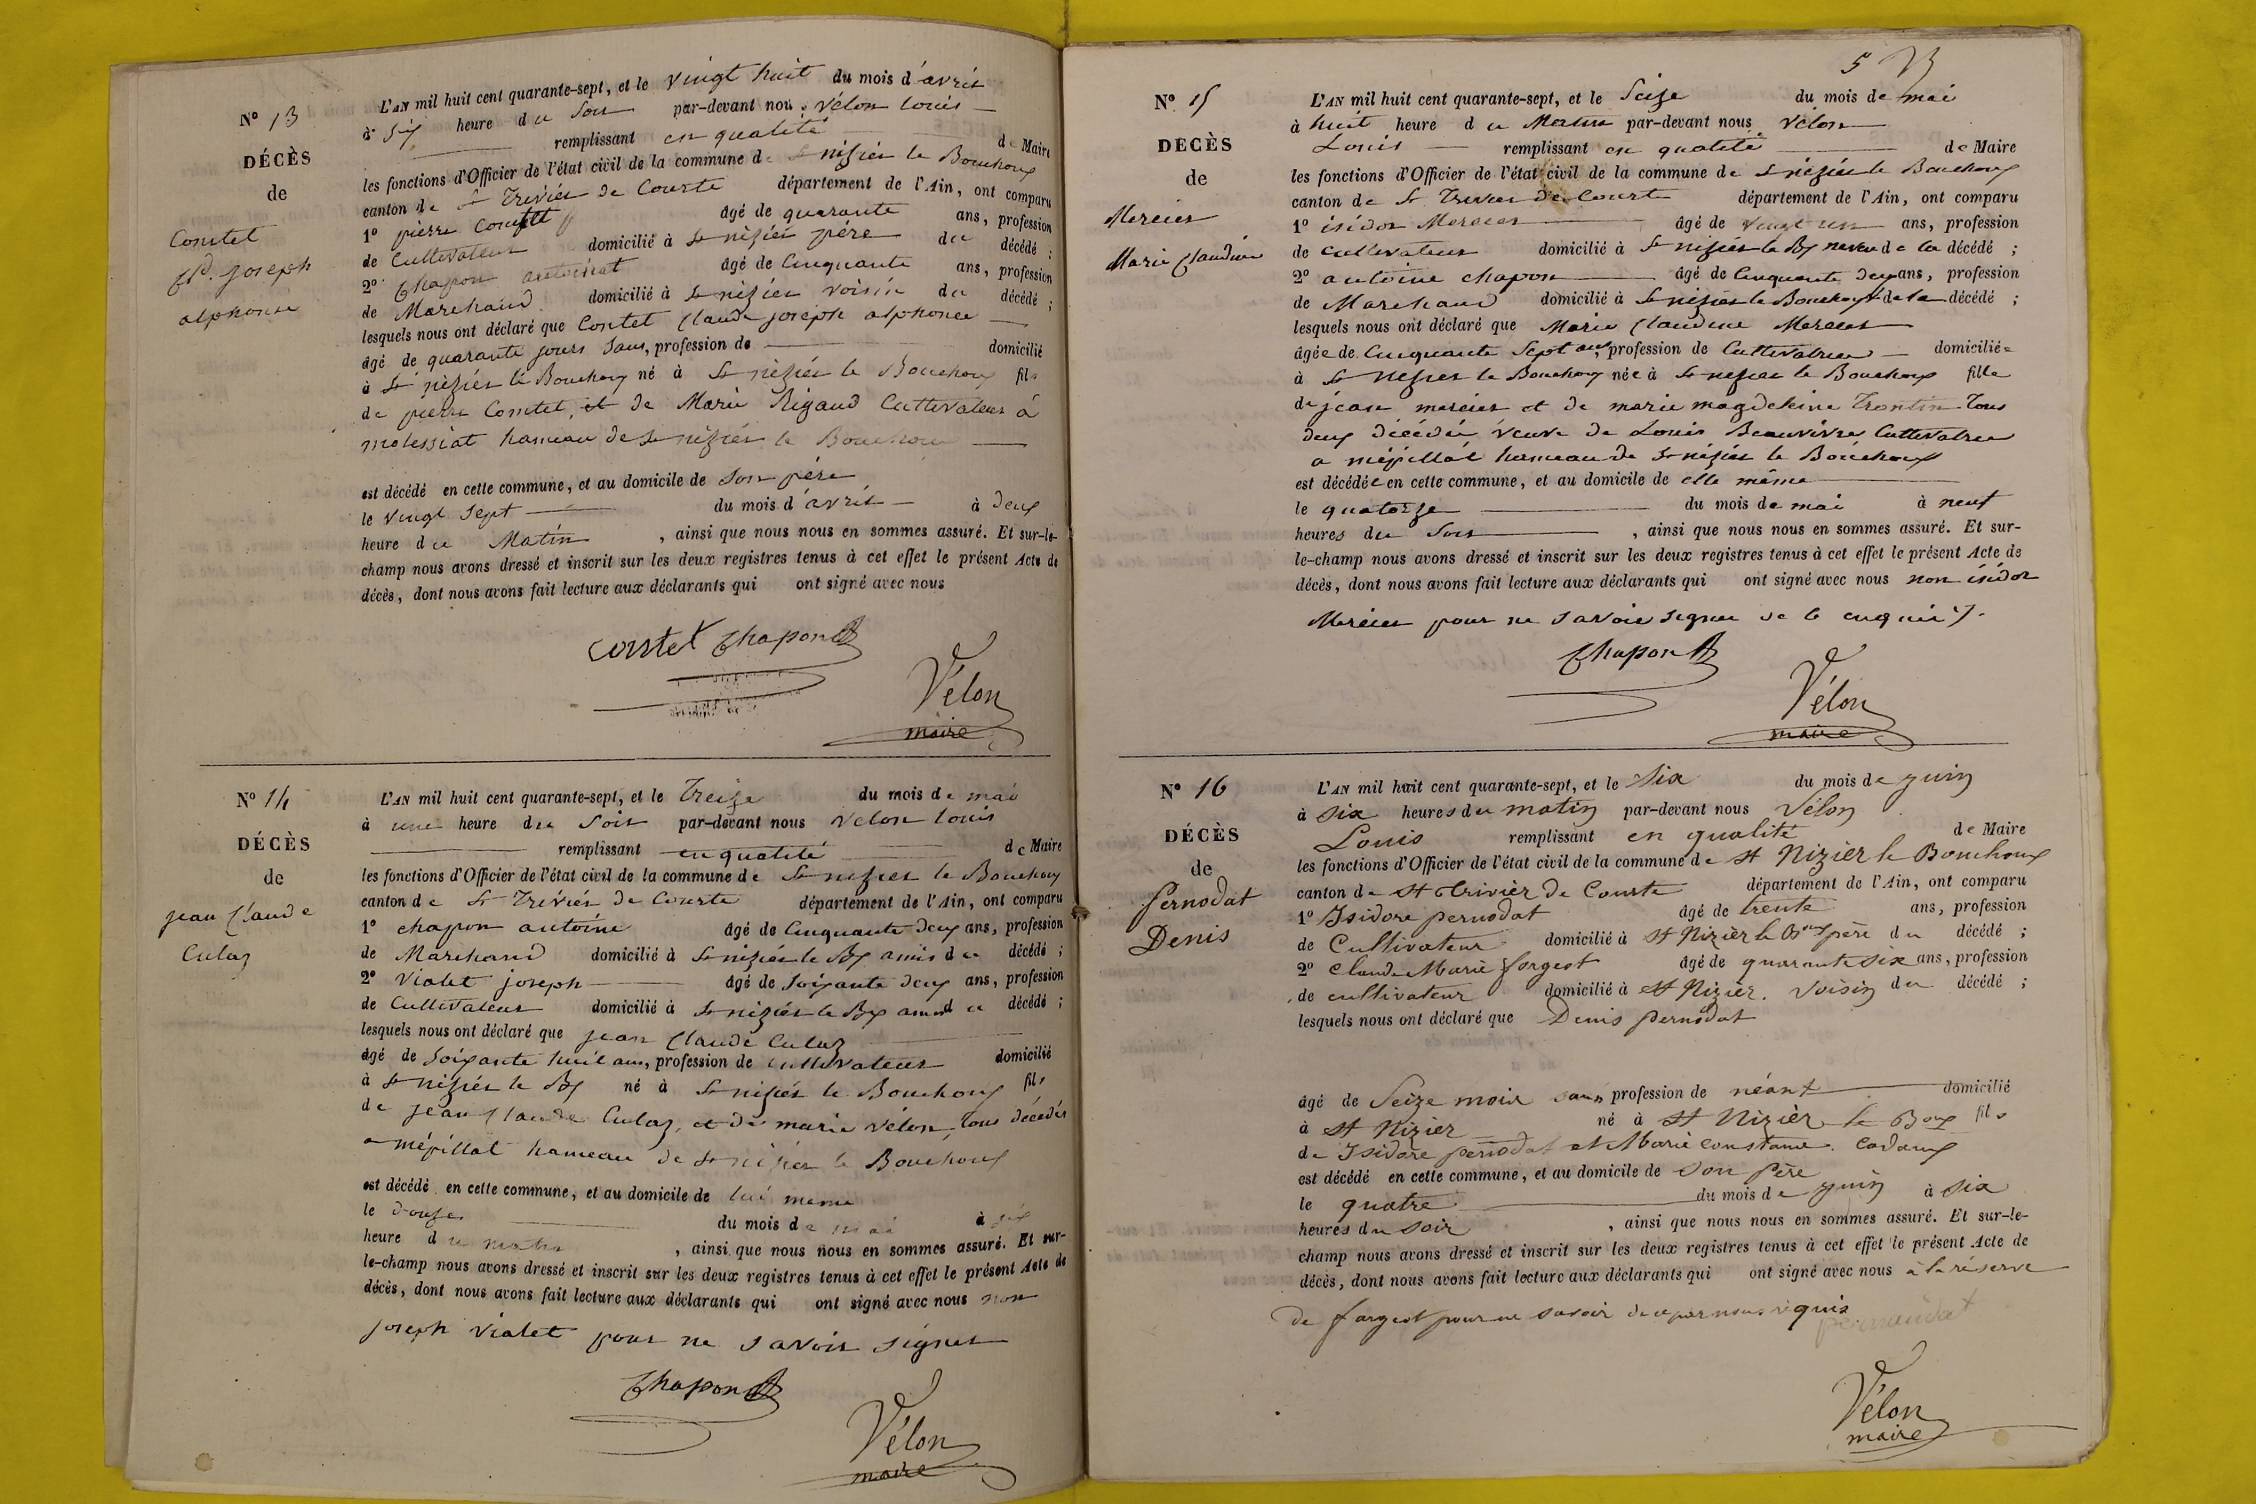 Nº 13
DÉCÈS
de
Comtet
Cld. joseph
alphonse
L'AN mil huit cent quarante-sept, et le vingt huit du mois d'avril
à Six heure du Soir par-devant nous Vélon Louis
remplissant en qualité de Maire
les fonctions d'Officier de l'état civil de la commune de St nizier le Bouchoux
canton de St Trivier de Courte département de l'Ain, ont comparu
1º pierre Comtet âgé de quarante ans, profession
de Cultivateur domicilié à St nizier père du décédé ;
2º Chapon antoine âgé de Cinquante ans, profession
de Marchand domicilié à St nizier voisin du décédé ;
lesquels nous ont déclaré que Contet Claude joseph alphonce
âgé de quarante jours Sans, profession de domicilié
à St nizier le Bouchoux né à St nizier le Bouchoux fils
de pierre Comtet, et de Marie Rigaud Cultivateur à
molessiat hameau de St nizier le Bouchoux
est décédé en cette commune, et au domicile de Son père
le vingt Sept du mois d'avril à deux
heure du Matin , ainsi que nous nous en sommes assuré. Et sur-le-
champ nous avons dressé et inscrit sur les deux registres tenus à cet effet le présent Acte de
décès, dont nous avons fait lecture aux déclarants qui ont signé avec nous
Comtet Chapon
Vélon
maire
Nº 14
DÉCÈS
de
jean Claude
Culaz
L'AN mil huit cent quarante-sept, et le Treize du mois de mai
à une heure du Soir par-devant nous Velon Louis
remplissant en qualité de Maire
les fonctions d'Officier de l'état civil de la commune de St nizier le Bouchoux
canton de St Trivier de Courte département de l'Ain, ont comparu
1º chapon antoine âgé de Cinquante deux ans, profession
de Marchand domicilié à St nizier le Bx amis du décédé ;
2º Violet joseph âgé de Soixante deux ans, profession
de Cultivateur domicilié à St nizier le Bx amis du décédé ;
lesquels nous ont déclaré que jean Claude Culaz
âgé de Soixante huit ans, profession de cultivateur domicilié
à St nizier le Bx né à St nizier le Bouchoux fils
de jean Claude Culaz, et de marie vélon, tous décédés
a mépillat hameau de St nizier le Bouchoux
est décédé en cette commune, et au domicile de lui meme
le douze du mois de mai à six
heure du matin , ainsi que nous nous en sommes assuré. Et sur-
le-champ nous avons dressé et inscrit sur les deux registres tenus à cet effet le présent Acte de
décès, dont nous avons fait lecture aux déclarants qui ont signé avec nous non
joseph violet pour ne savoir signer
Chapon
Vélon
maire
5
Nº 15
DECÈS
de
Mercier
Marie Claudine
L'AN mil huit cent quarante-sept, et le Seize du mois de mai
à huit heure du Matin par-devant nous Vélon
Louis remplissant en qualité de Maire
les fonctions d'Officier de l'état civil de la commune de St nizier le Bouchoux
canton de St Trivier de Courte département de l'Ain, ont comparu
1º isidor Mercier âgé de vingt un ans, profession
de cultivateur domicilié à St nizier le Bx neveu de la décédé ;
2º antoine chapon âgé de Cinquante deux ans, profession
de Marchand domicilié à St nizier le Bouchoux de la décédé ;
lesquels nous ont déclaré que Marie Claudine Mercier
âgée de Cinquante Sept ans, profession de Cultivatrice domiciliée
à St nizier le Bouchoux née à St nizier le Bouchoux fille
de jean mercier et de marie magdeleine Trontin Tous
deux décédé veuve de Louis Beauvivre Cultivatrice
a mépillat hameau de St nizier le Bouchoux
est décédée en cette commune, et au domicile de elle même
le quatorze du mois de mai à neuf
heures du Soir , ainsi que nous nous en sommes assuré. Et sur-
le-champ nous avons dressé et inscrit sur les deux registres tenus à cet effet le présent Acte de
décès, dont nous avons fait lecture aux déclarants qui ont signé avec nous non isidor
Mercier pour ne savoir signer de ce enquis
Chapon
Vélon
maire
Nº 16
DÉCÈS
de
Pernodat
Denis
L'AN mil huit cent quarante-sept, et le Six du mois de juin
à six heures du matin par-devant nous Vélon
Louis remplissant en qualité de Maire
les fonctions d'Officier de l'état civil de la commune de St Nizier le Bouchoux
canton de St Trivier de Courte département de l'Ain, ont comparu
1º Isidore pernodat âgé de trente ans, profession
de Cultivateur domicilié à St Nizier le Boux père du décédé ;
2º Claude Marie fargeot âgé de quarante six ans, profession
de cultivateur domicilié à St Nizier. Voisin du décédé ;
lesquels nous ont déclaré que Denis pernodat
âgé de Seize mois sans profession de néant domicilié
à St Nizier né à St Nizier le Boux fils
de Isidore pernodat et Marie constance
est décédé en cette commune, et au domicile de son père
le quatre du mois de juin à six
heures du soir , ainsi que nous nous en sommes assuré. Et sur-le-
champ nous avons dressé et inscrit sur les deux registres tenus à cet effet le présent Acte de
décès, dont nous avons fait lecture aux déclarants qui ont signé avec nous à la réserve
de fargeot pour ne savoir de ce par nous requis
pernaudat
Vélon
maire